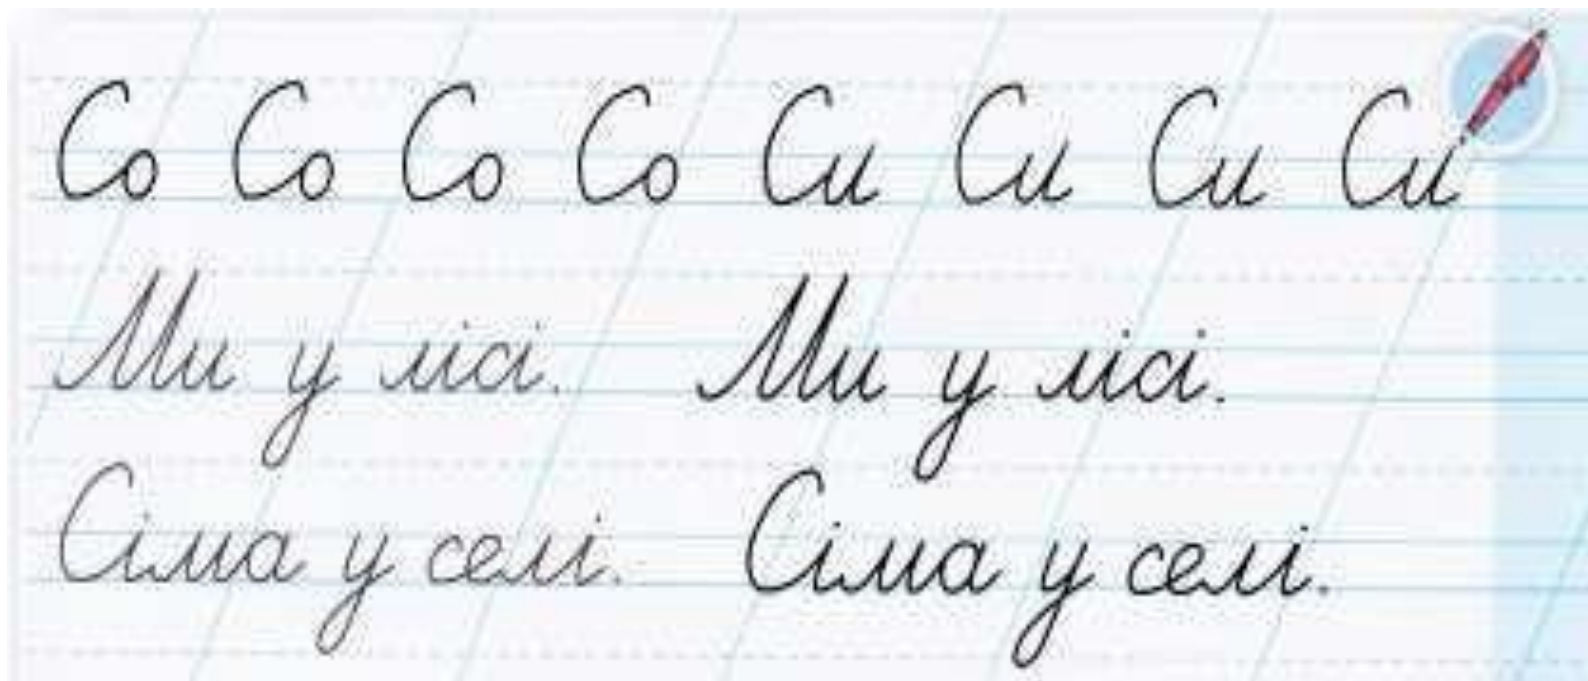 Со Со Со Со Си Си Си Си
Ми у лісі. Ми у лісі.
Сіма у селі. Сіма у селі.